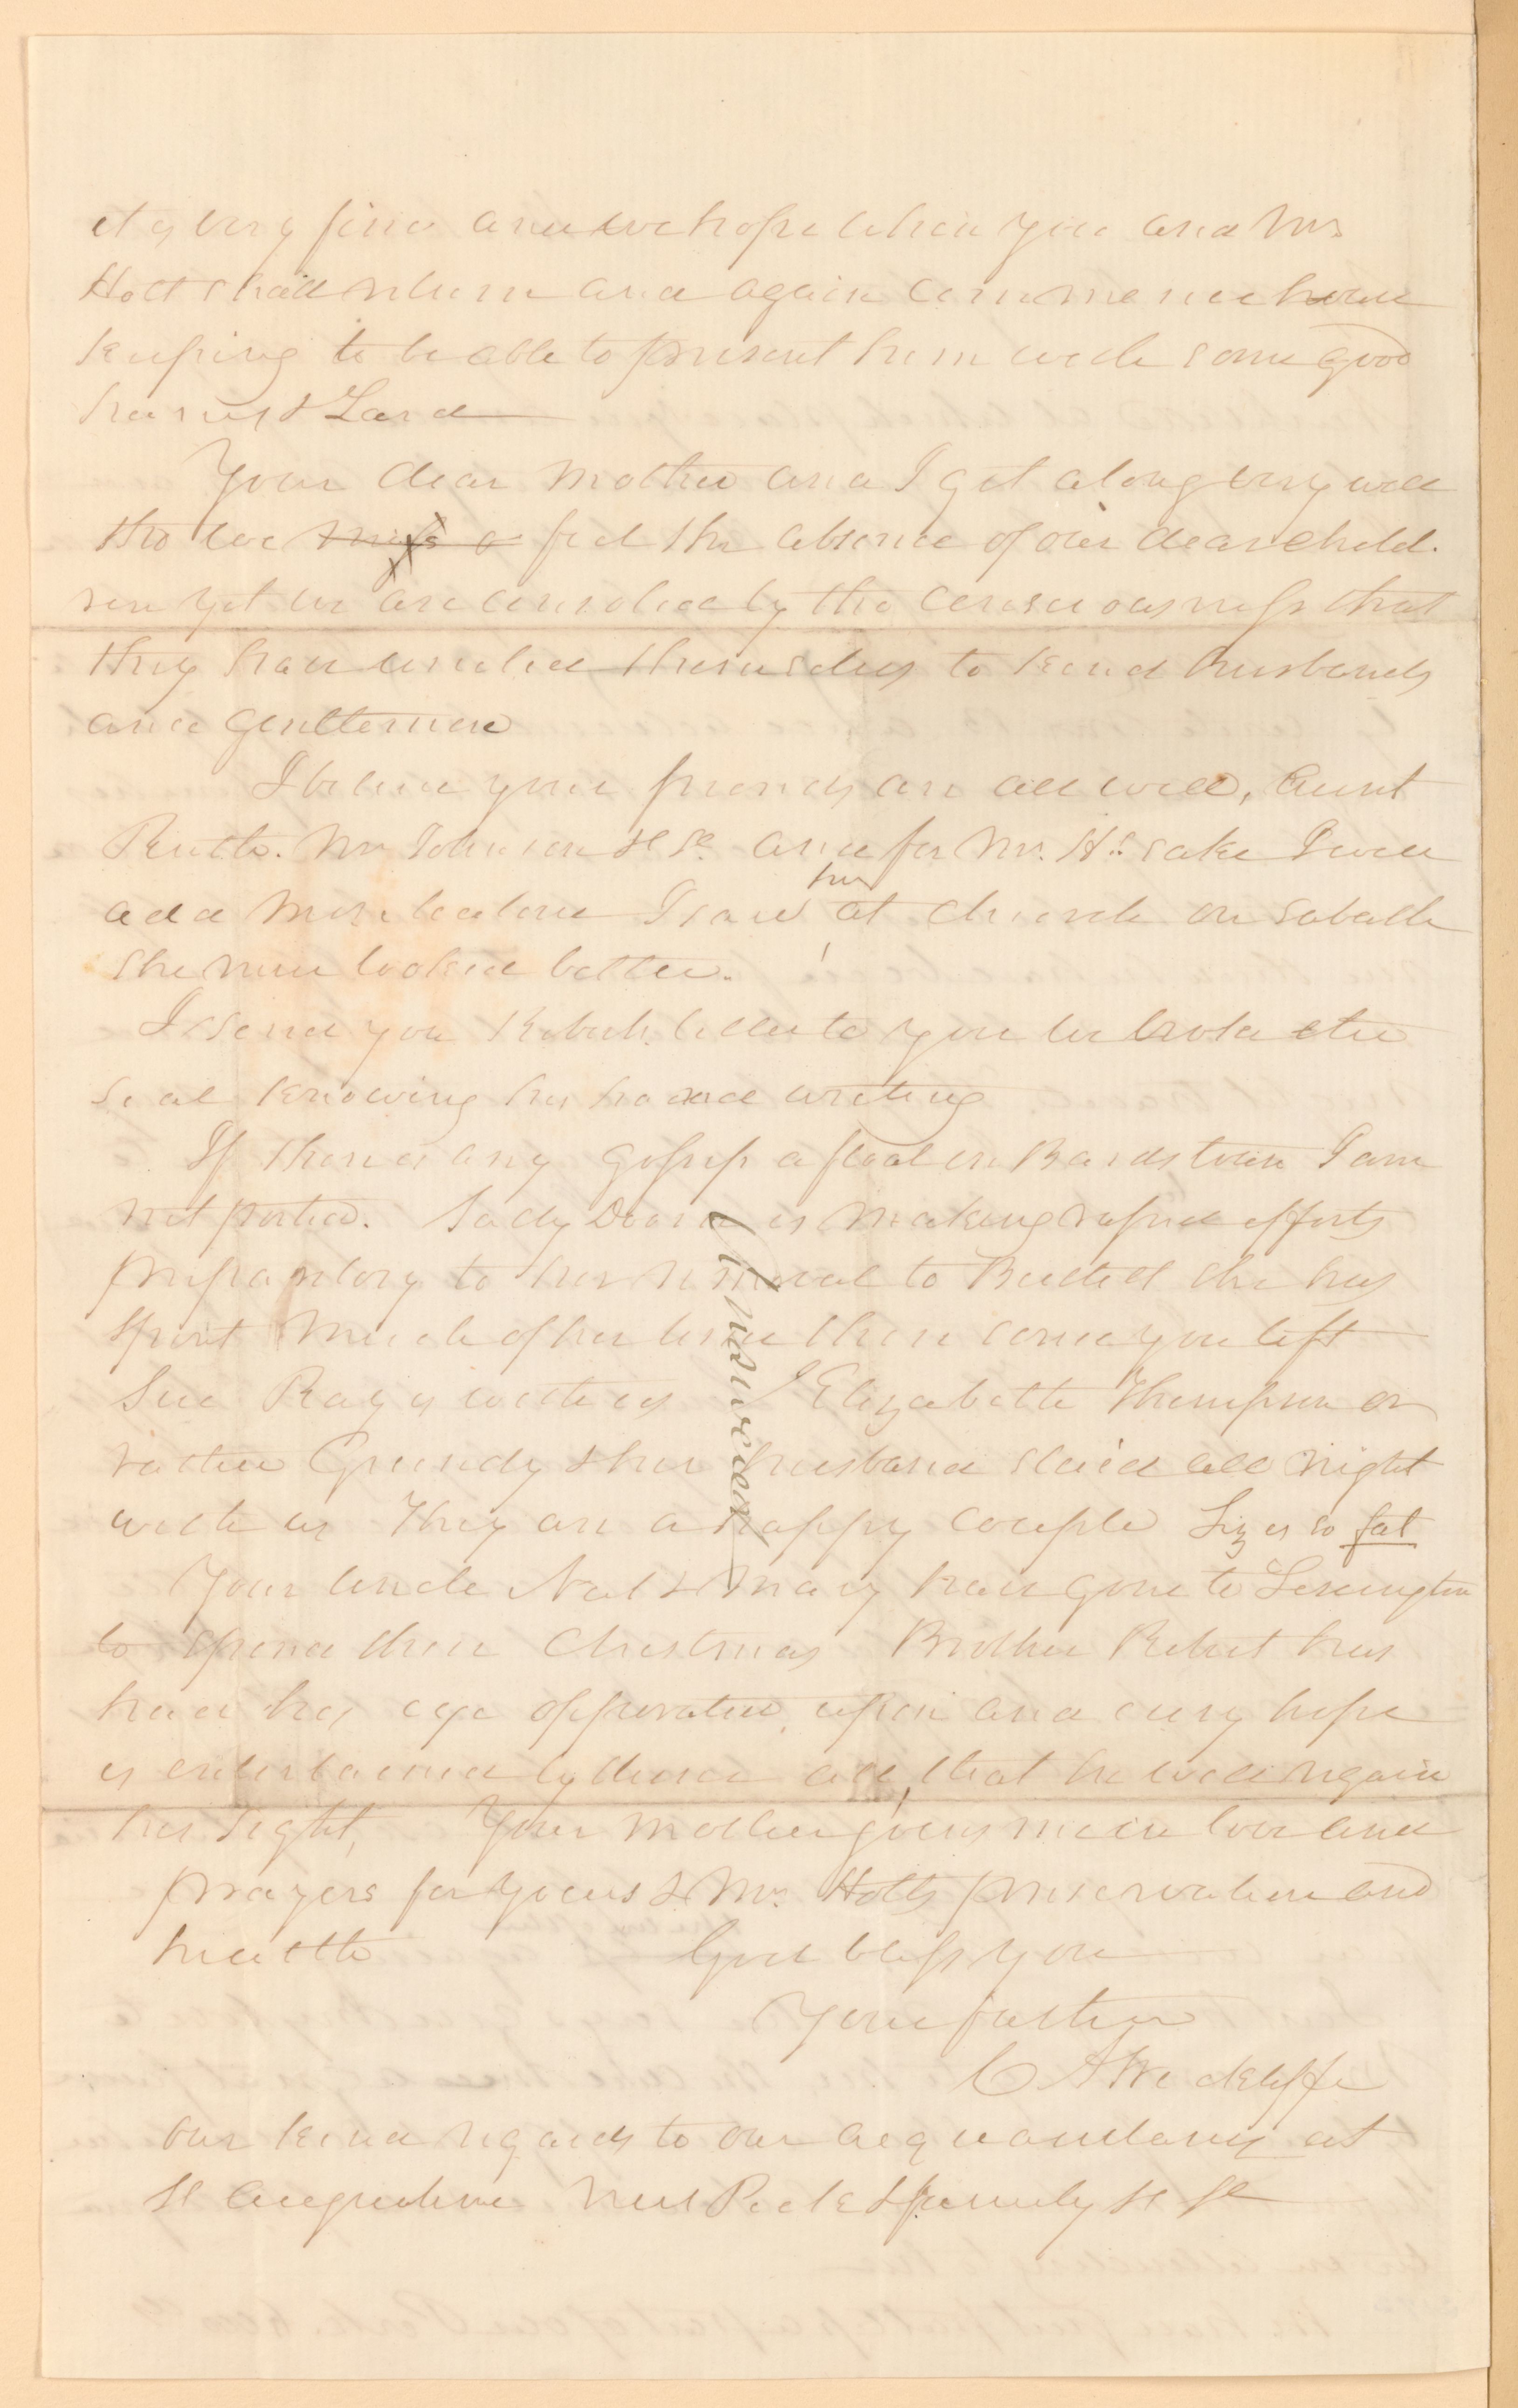 it is very fine and we hope when you and Mr
Holt shall return and again commence house
keeping to be able to present him with some good
hams & Lard
Your dear Mother and I get along very well
tho we miss & feel the absence of our dear child-
ren yet we are consoled by the consciousness that
they have united themselves to kind husbands
and gentlemen
I believe your friends are all well, Aunt
Ruth. Mr Johnson &c &c. and for Mr. H's sake I will
add I saw her at church on Sabath
she never looked better.
I send you Roberts letter to you we broke the
seal knowing his hand writing
If there is any gossip afloat in Bardstown I am
not posted. Lady is making rapid efforts
preparatory to her removal to she has
spent much of her time there since you left
Sue Ray is with us Elizabeth Thompson or
rather Grundy & her husband staid all night
with us They are a happy couple Liz is so fat
Your Uncle Nat & Mary have gone to Lexington
to spend their Christmas Brother Robert has
had his eye opperated upon and every hope
is entertained by them all, that he will regain
his sight, Your mother joins me in love and
prayers for yours & Mr. Holts preservation and
health God bless you
Your father
C A Wickliffe
our kind regards to our acquaintances at
St Augustine Peck & family &c &c
Answered